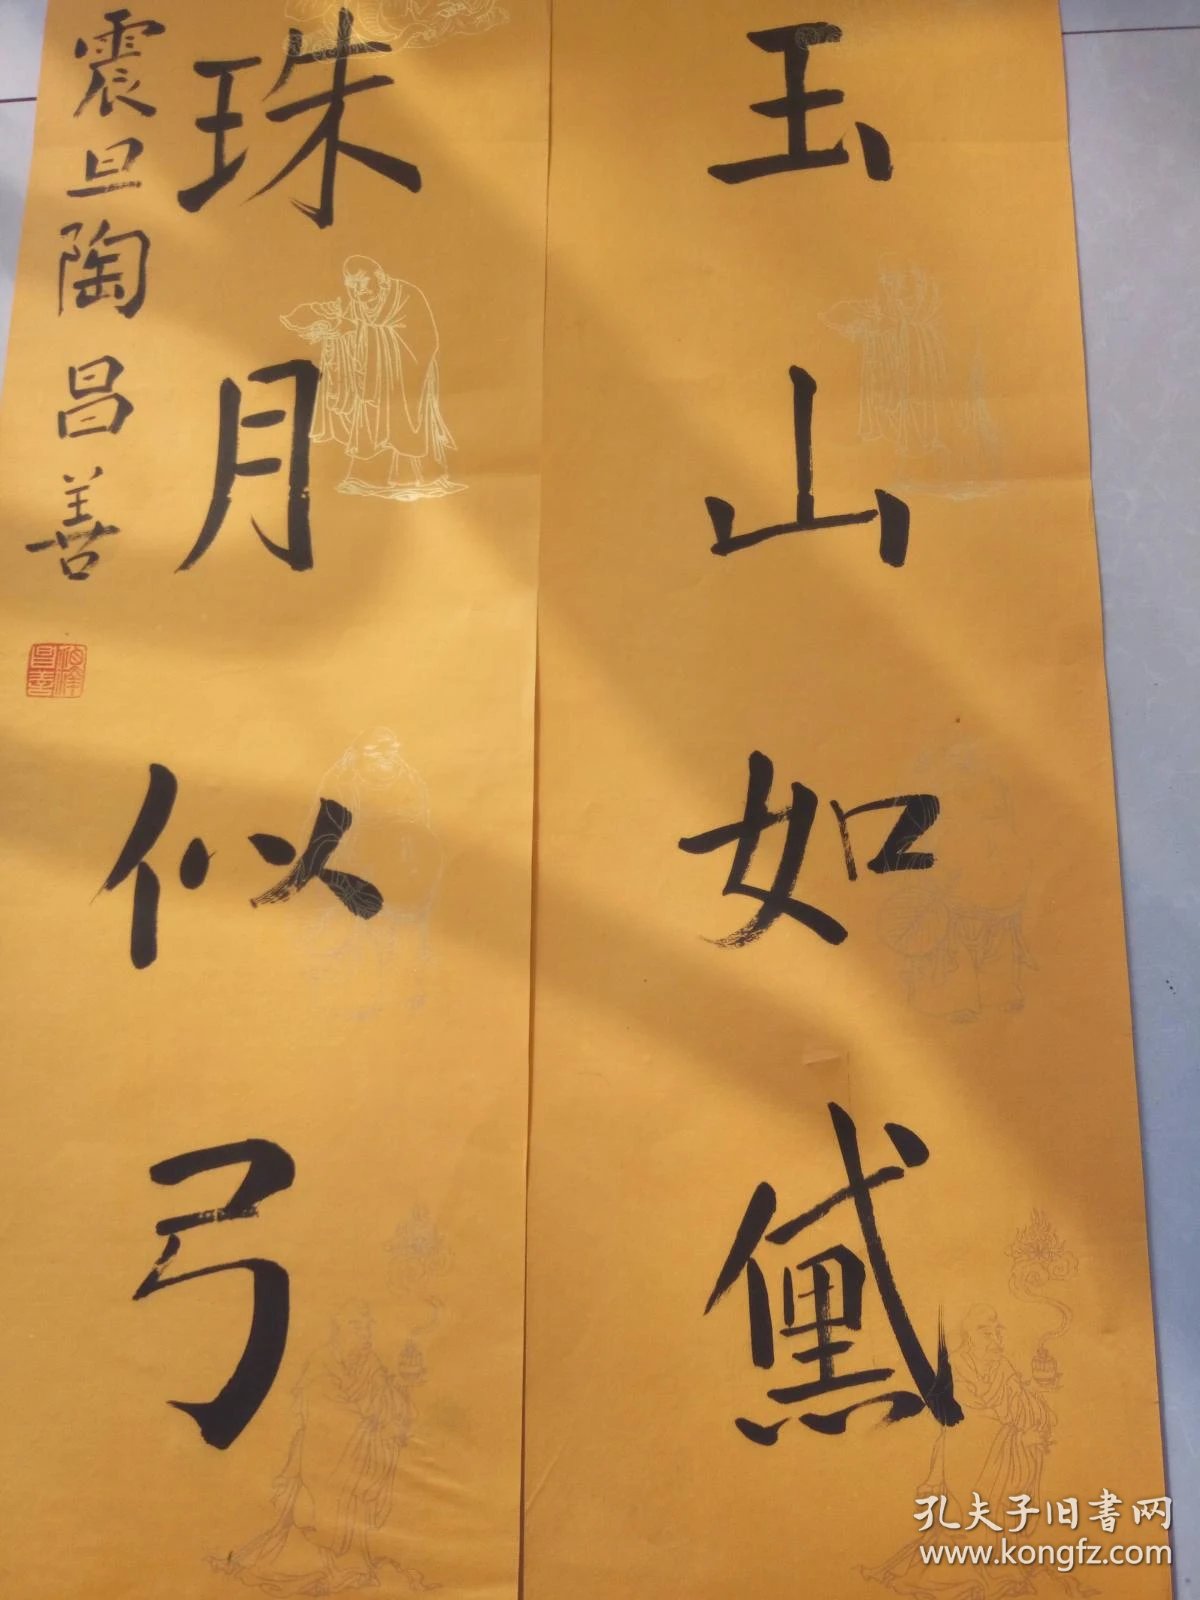 玉山如黛
珠月似弓
震旦陶昌善
孔夫子旧書网
www.kongfz.com